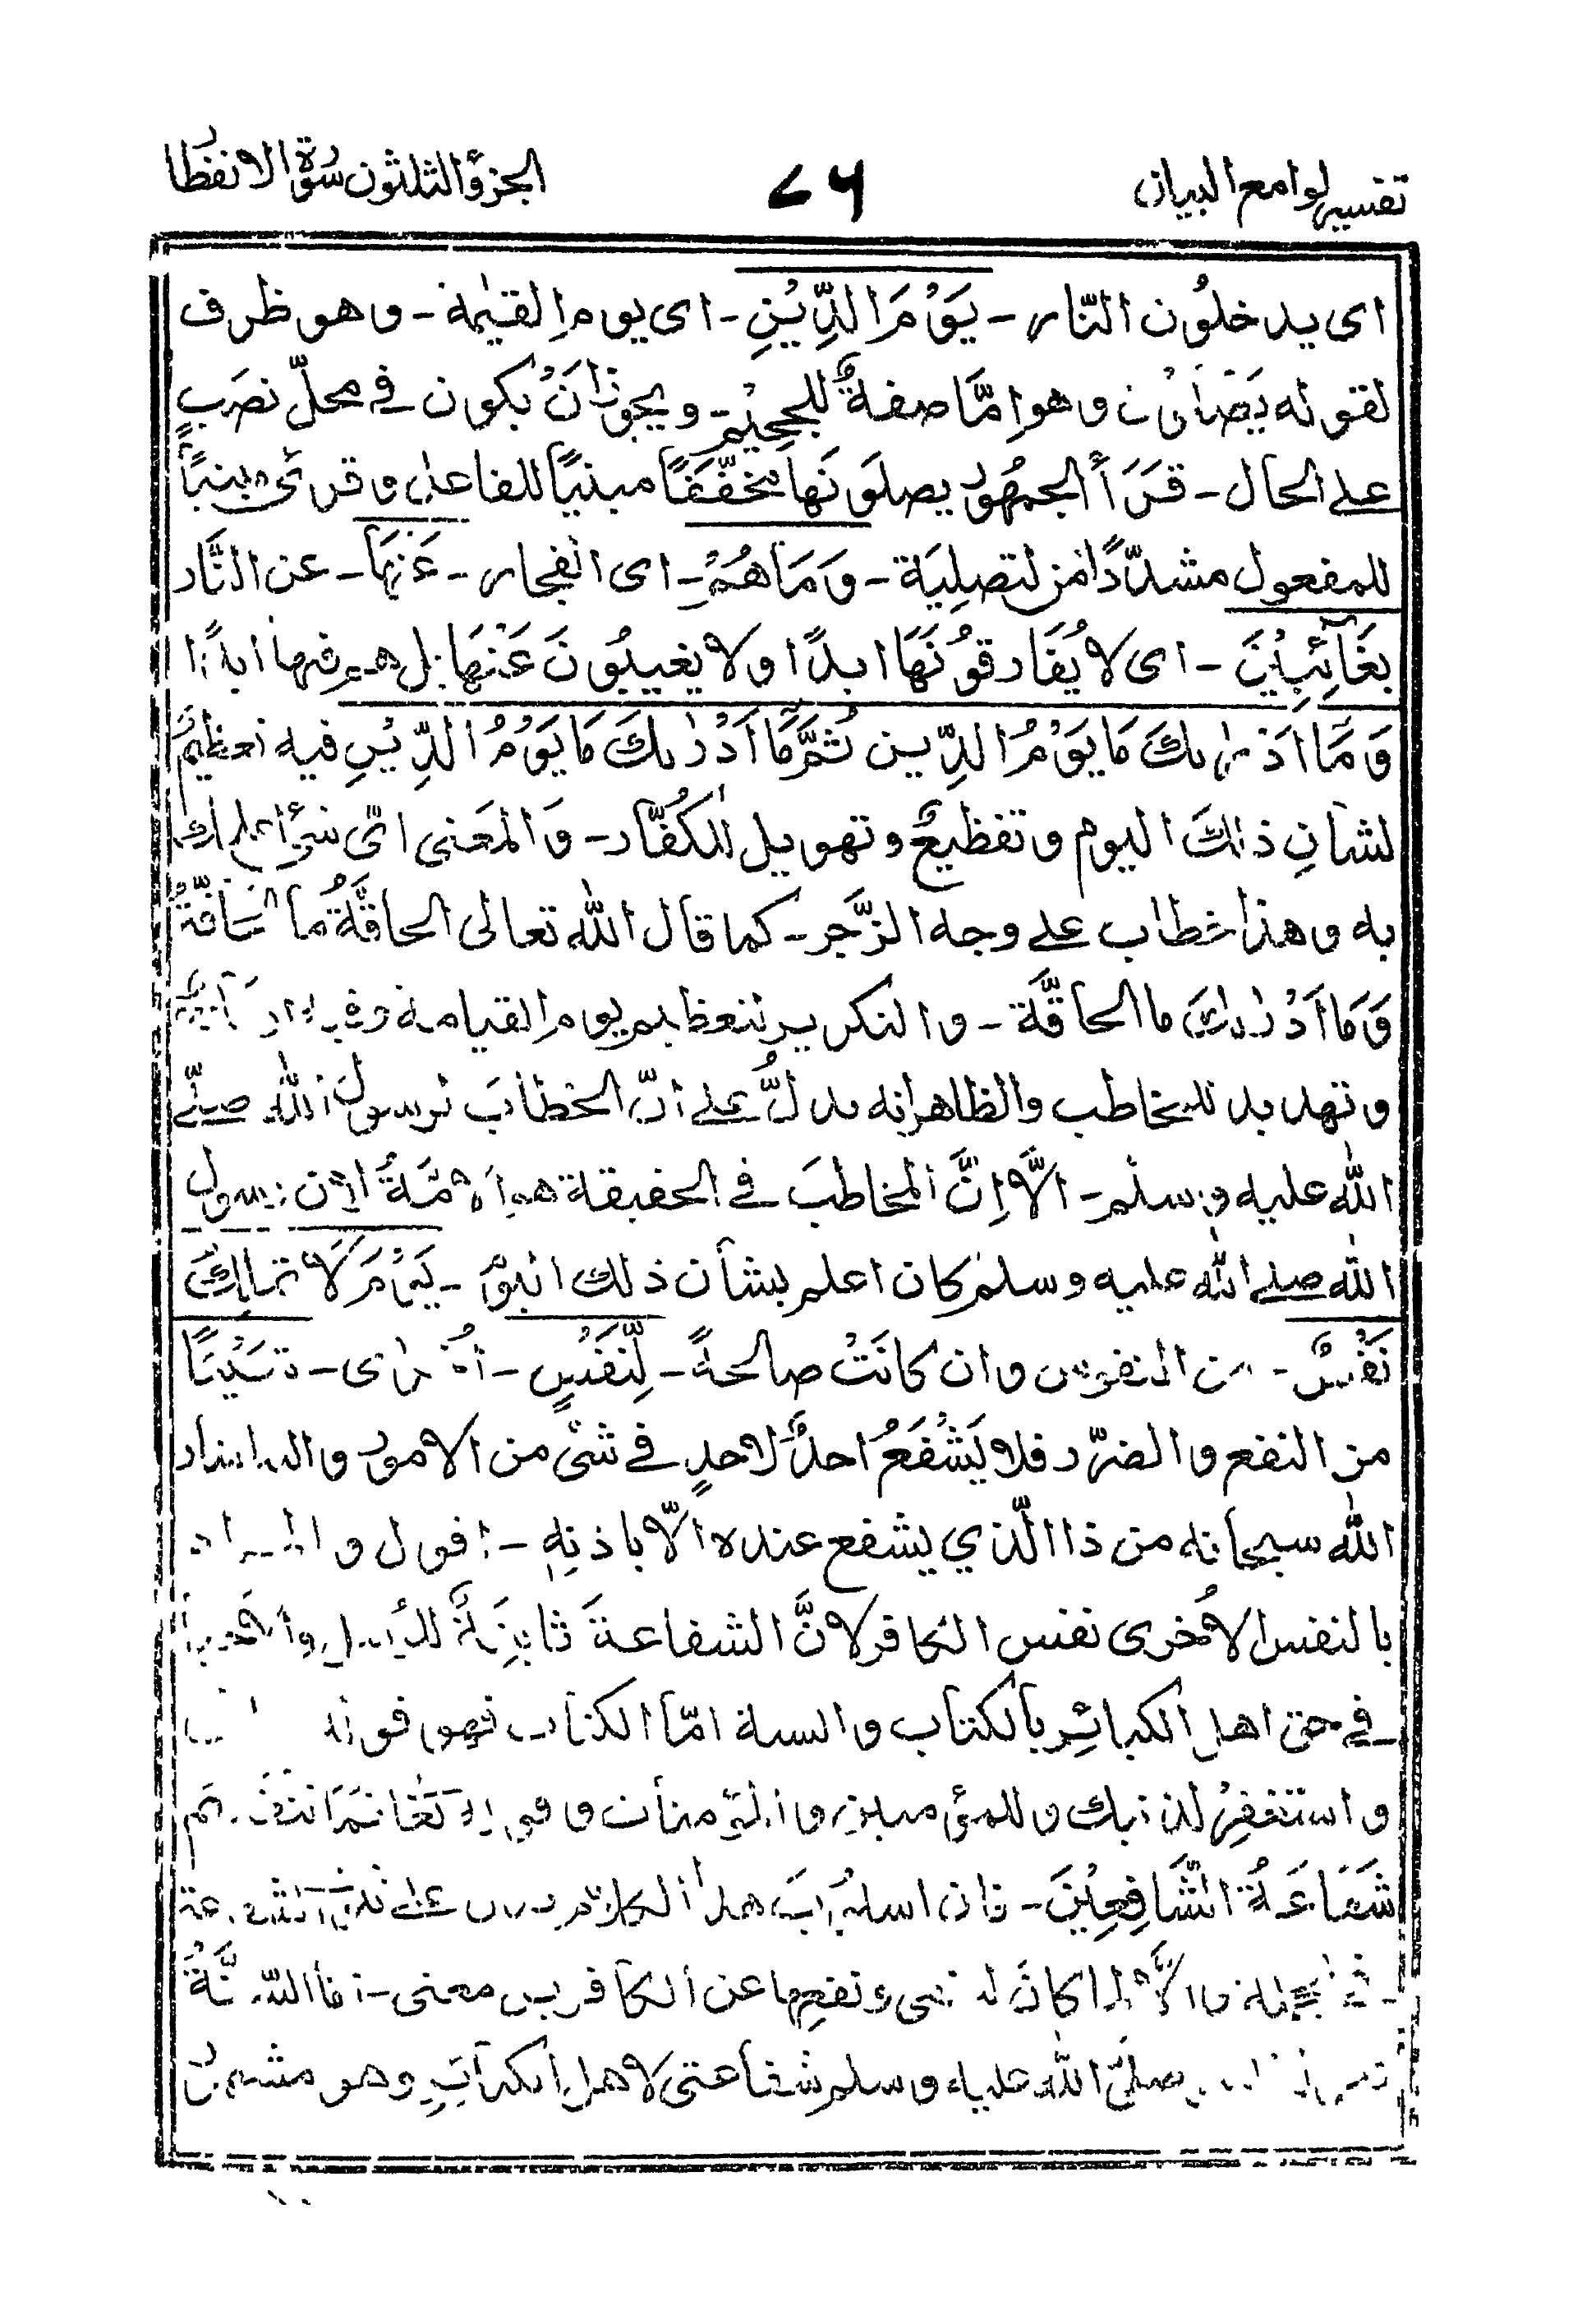 تفسير لوامع البيان ٧٦ الجزؤ الثلثون سورة الانفطار
اى يدخلُون النّار - يَوْمَ الدِّيْنِ - اى يوم القيٰمة - وهو ظرف
لقوله يَصْلَوْنَ وهو اِمَّا صفةٌ للجحِيْم - ويجوز اَنْ يكون فى محلّ نصَبٍ
على الحال - قَرَأَ الجمهُور يصلَونَها مخفَّفًا مبنيًا للفاعل وقرئ مبنيًا
للمفعول مشدّدًا من التصلِيَة - وَمَا هُمْ - اى الفجار - عَنْهَا - عن النَّار
بغَآئِبِيْنَ - اى لا يُفَارقُونَهَا ابدًا ولا يغيبُونَ عَنْهَا بل هم فيها ابدًا
وَمَا اَدْرٰىكَ مَا يَوْمُ الدِّيْنِ ثُمَّ مَا اَدْرٰىكَ مَا يَوْمُ الدِّيْنِ فيه تعظيمٌ
لشانِ ذالكَ اليوم وتفظيعٌ وتهويل للكُفَّار - وَالمَعنى اىّ شئ اعلمك
به وهذا خطاب على وجه الزَّجر - كما قال الله تعالى الحاقَّةُ ما الحَاقَّةُ
وَمَا اَدْرٰىكَ ما الحاقَّة - والتكرير لتعظيم يوم القيامة
وتهديد للمخاطب والظاهر انه يدلُّ على انّ الخطابَ لرسول الله صلّے
الله عليه وسلم - الَّا اِنَّ المخاطبَ فى الحقيقة هو الامَّةُ لان رسول
الله صلے الله عليه وسلم كان اعلم بشأن ذلك اليوم - يَوْمَ لَا تملِكُ
نَفْسٌ - من النفوس وان كانَتْ صالحةً - لِّنَفْسٍ - اُخرى - شَيْئًا
من النفع والضرّ فلا يَشْفَعُ احدٌ لاحدٍ فى شئ من الامور
الله سبحانه من ذا الّذي يشفع عنده الّا باذنهٖ - اقول والمراد
بالنفس الاُخرى نفس الكافر لانَّ الشفاعةَ ثابتةٌ للرسل
فى حق اهل الكبائِر بالكتاب والسنة امّا الكتاب فهو قوله
واستغفِرْ لذنبك وللمؤمنين والمؤمنات وقوله تعَالى فَمَا تنفعهم
شَفَاعَةُ الشَّافِعِيْنَ - فان اسلوبَ هذا الكلام يدل على ثبوت الشفاعة
فى الجملة والَّا لما كانَ لنفى نفعها عن الكافرين معنى - امّا السُّنَّةُ
صلّى الله عليه وسلم شفاعتى لاهل الكبائِر وهو مشهورٌ